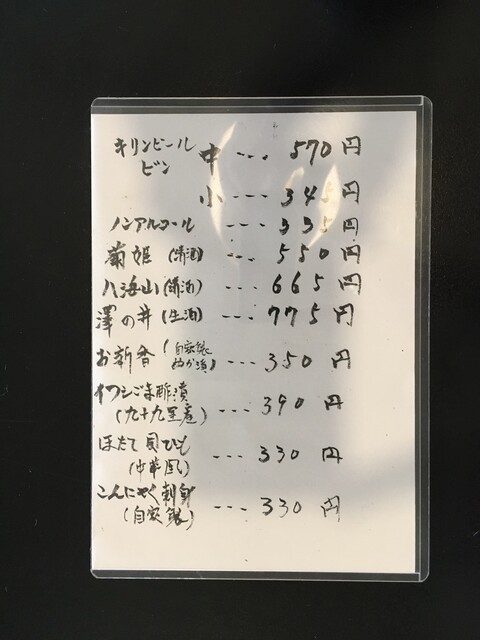 キリンビール ビン 中 --- 570円
小 --- 345円
ノンアルコール --- 335円
菊姫(清酒) --- 550円
八海山(清酒) --- 665円
澤の井(生酒) --- 775円
お新香(自家製ぬか漬) --- 350円
イワシごま酢漬
(九十九里産) --- 390円
ほたて貝ひも
(中華風) --- 330円
こんにゃく刺身
(自家製) --- 330円